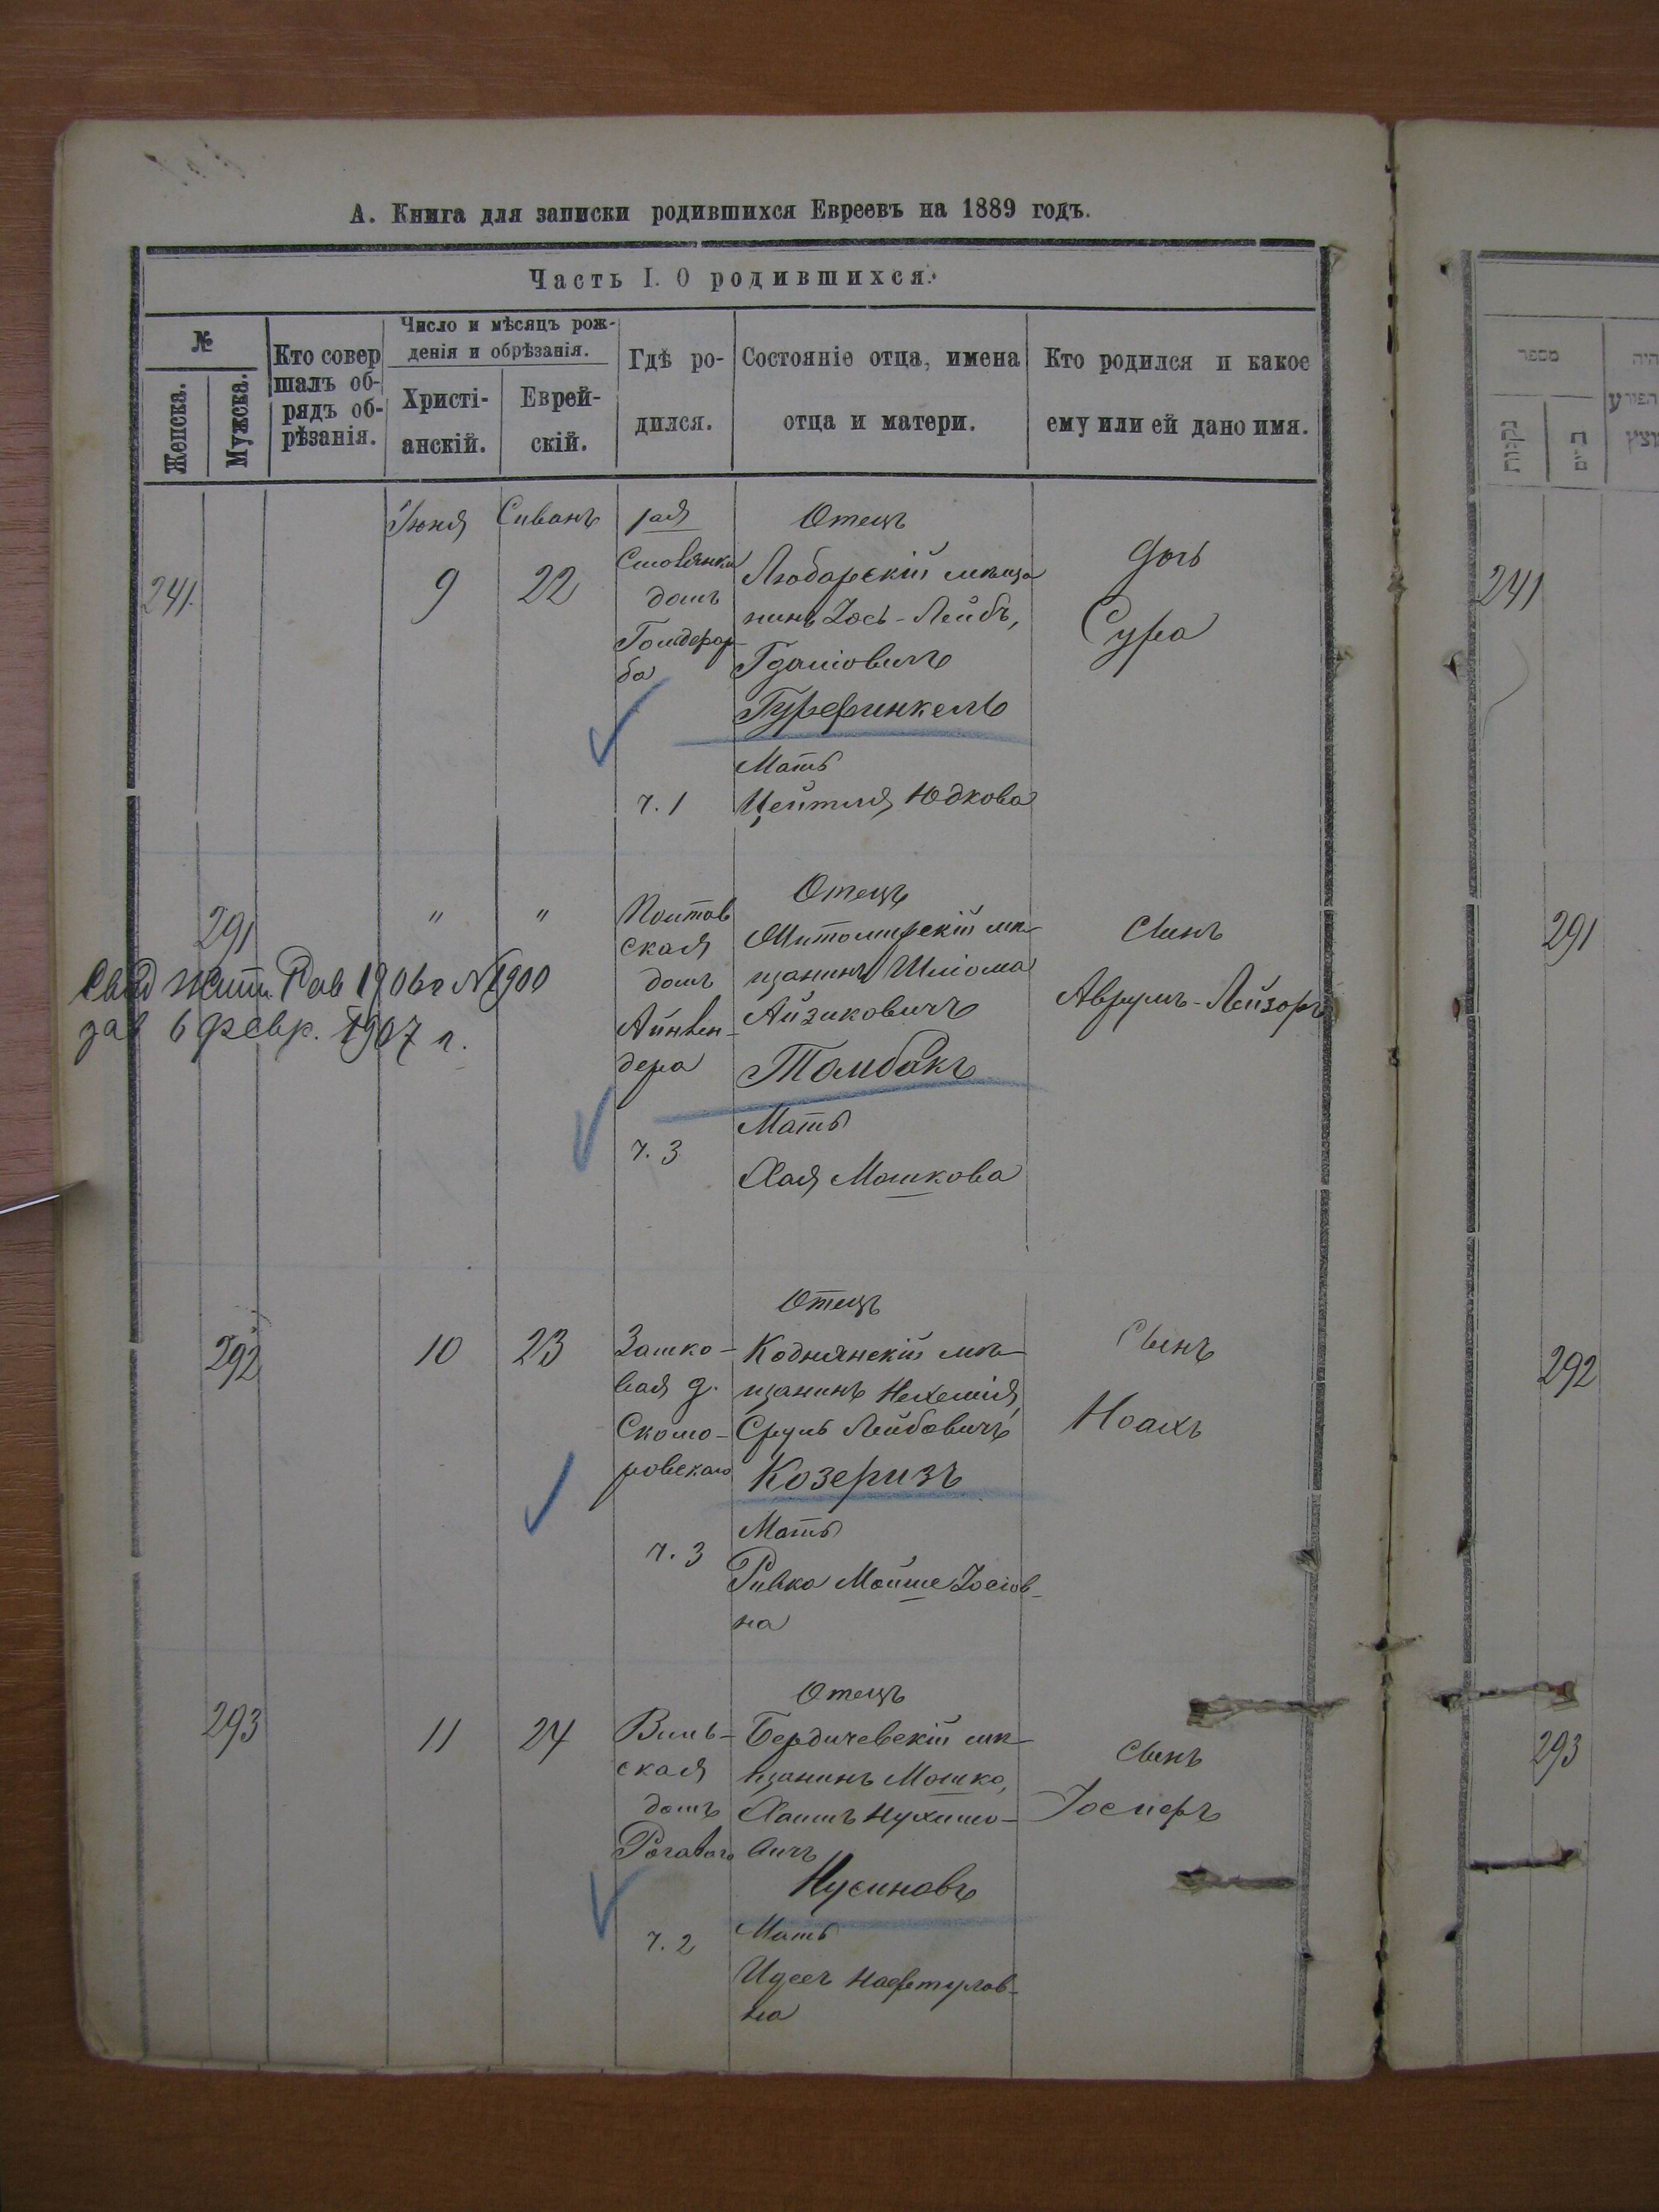 А. Книга для записки родившихся Евреевъ на 1889 годъ.
Часть I. О родившихся.
№
Женска.
Мужска.
Кто совер
шалъ об-
рядъ об-
рѣзанія.
Число и мѣсяцъ рож-
денія и обрѣзанія.
Христі-
анскій.
Еврей-
скій.
Гдѣ ро-
дился.
Состояніе отца, имена
отца и матери.
Кто родился и какое
ему или ей дано имя.
241
Іюня
9
Сиванъ
22
домъ
Гольдфар-
ба
ч. 1
Отецъ
Любарскій мѣща
нинъ Іось-Лейбъ,
Гдаліовичъ
Гурфинкель
Мать
Цейтля Юдкова
Дочь
Сура
291
"
"
Полтав
ская
домъ
дера
ч. 3
Отецъ
Житомирскій мѣ-
щанинъ Шліома
Айзиковичъ
Тамбакъ
Мать
Хая Мошкова
Сынъ
Аврумъ-Лейзоръ
Рав 1906 г №1900
6 февр. 1907 г.
292
10
23
Скомо-
ровскаго
ч. 3
Отецъ
Коднянскій мѣ-
щанинъ Нехемія,
Сруль Лейбовичъ
Козеризъ
Мать
Ривка Мойше Іосіов-
на
Сынъ
Ноахъ
293
11
24
Виль-
ская
домъ
Рогового
ч. 2
Отецъ
Бердичевскій мѣ-
щанинъ Мошко,
Хаимъ Нухимо-
вичъ
Нусиновъ
Мать
Нафтулов-
на
Сынъ
Іосперъ
מספר
נקבות
241
291
292
293